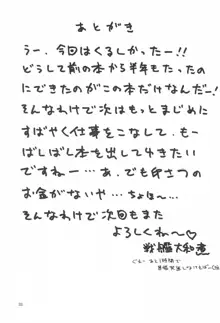 あとがき
うー、今回はくるしかったー!!
どうして前の本から半年もたったの
にできたのがこの本だけなんだー!
そんなわけで次はもっとまじめに
すばやく仕事をこなして、もー
ばしばし本を出して4きたい
ですねー…あ、でも印さつの
お金がないや…ちょほ〜…
そんなわけで次回もまた
よろしくね〜♡
戦艦大和